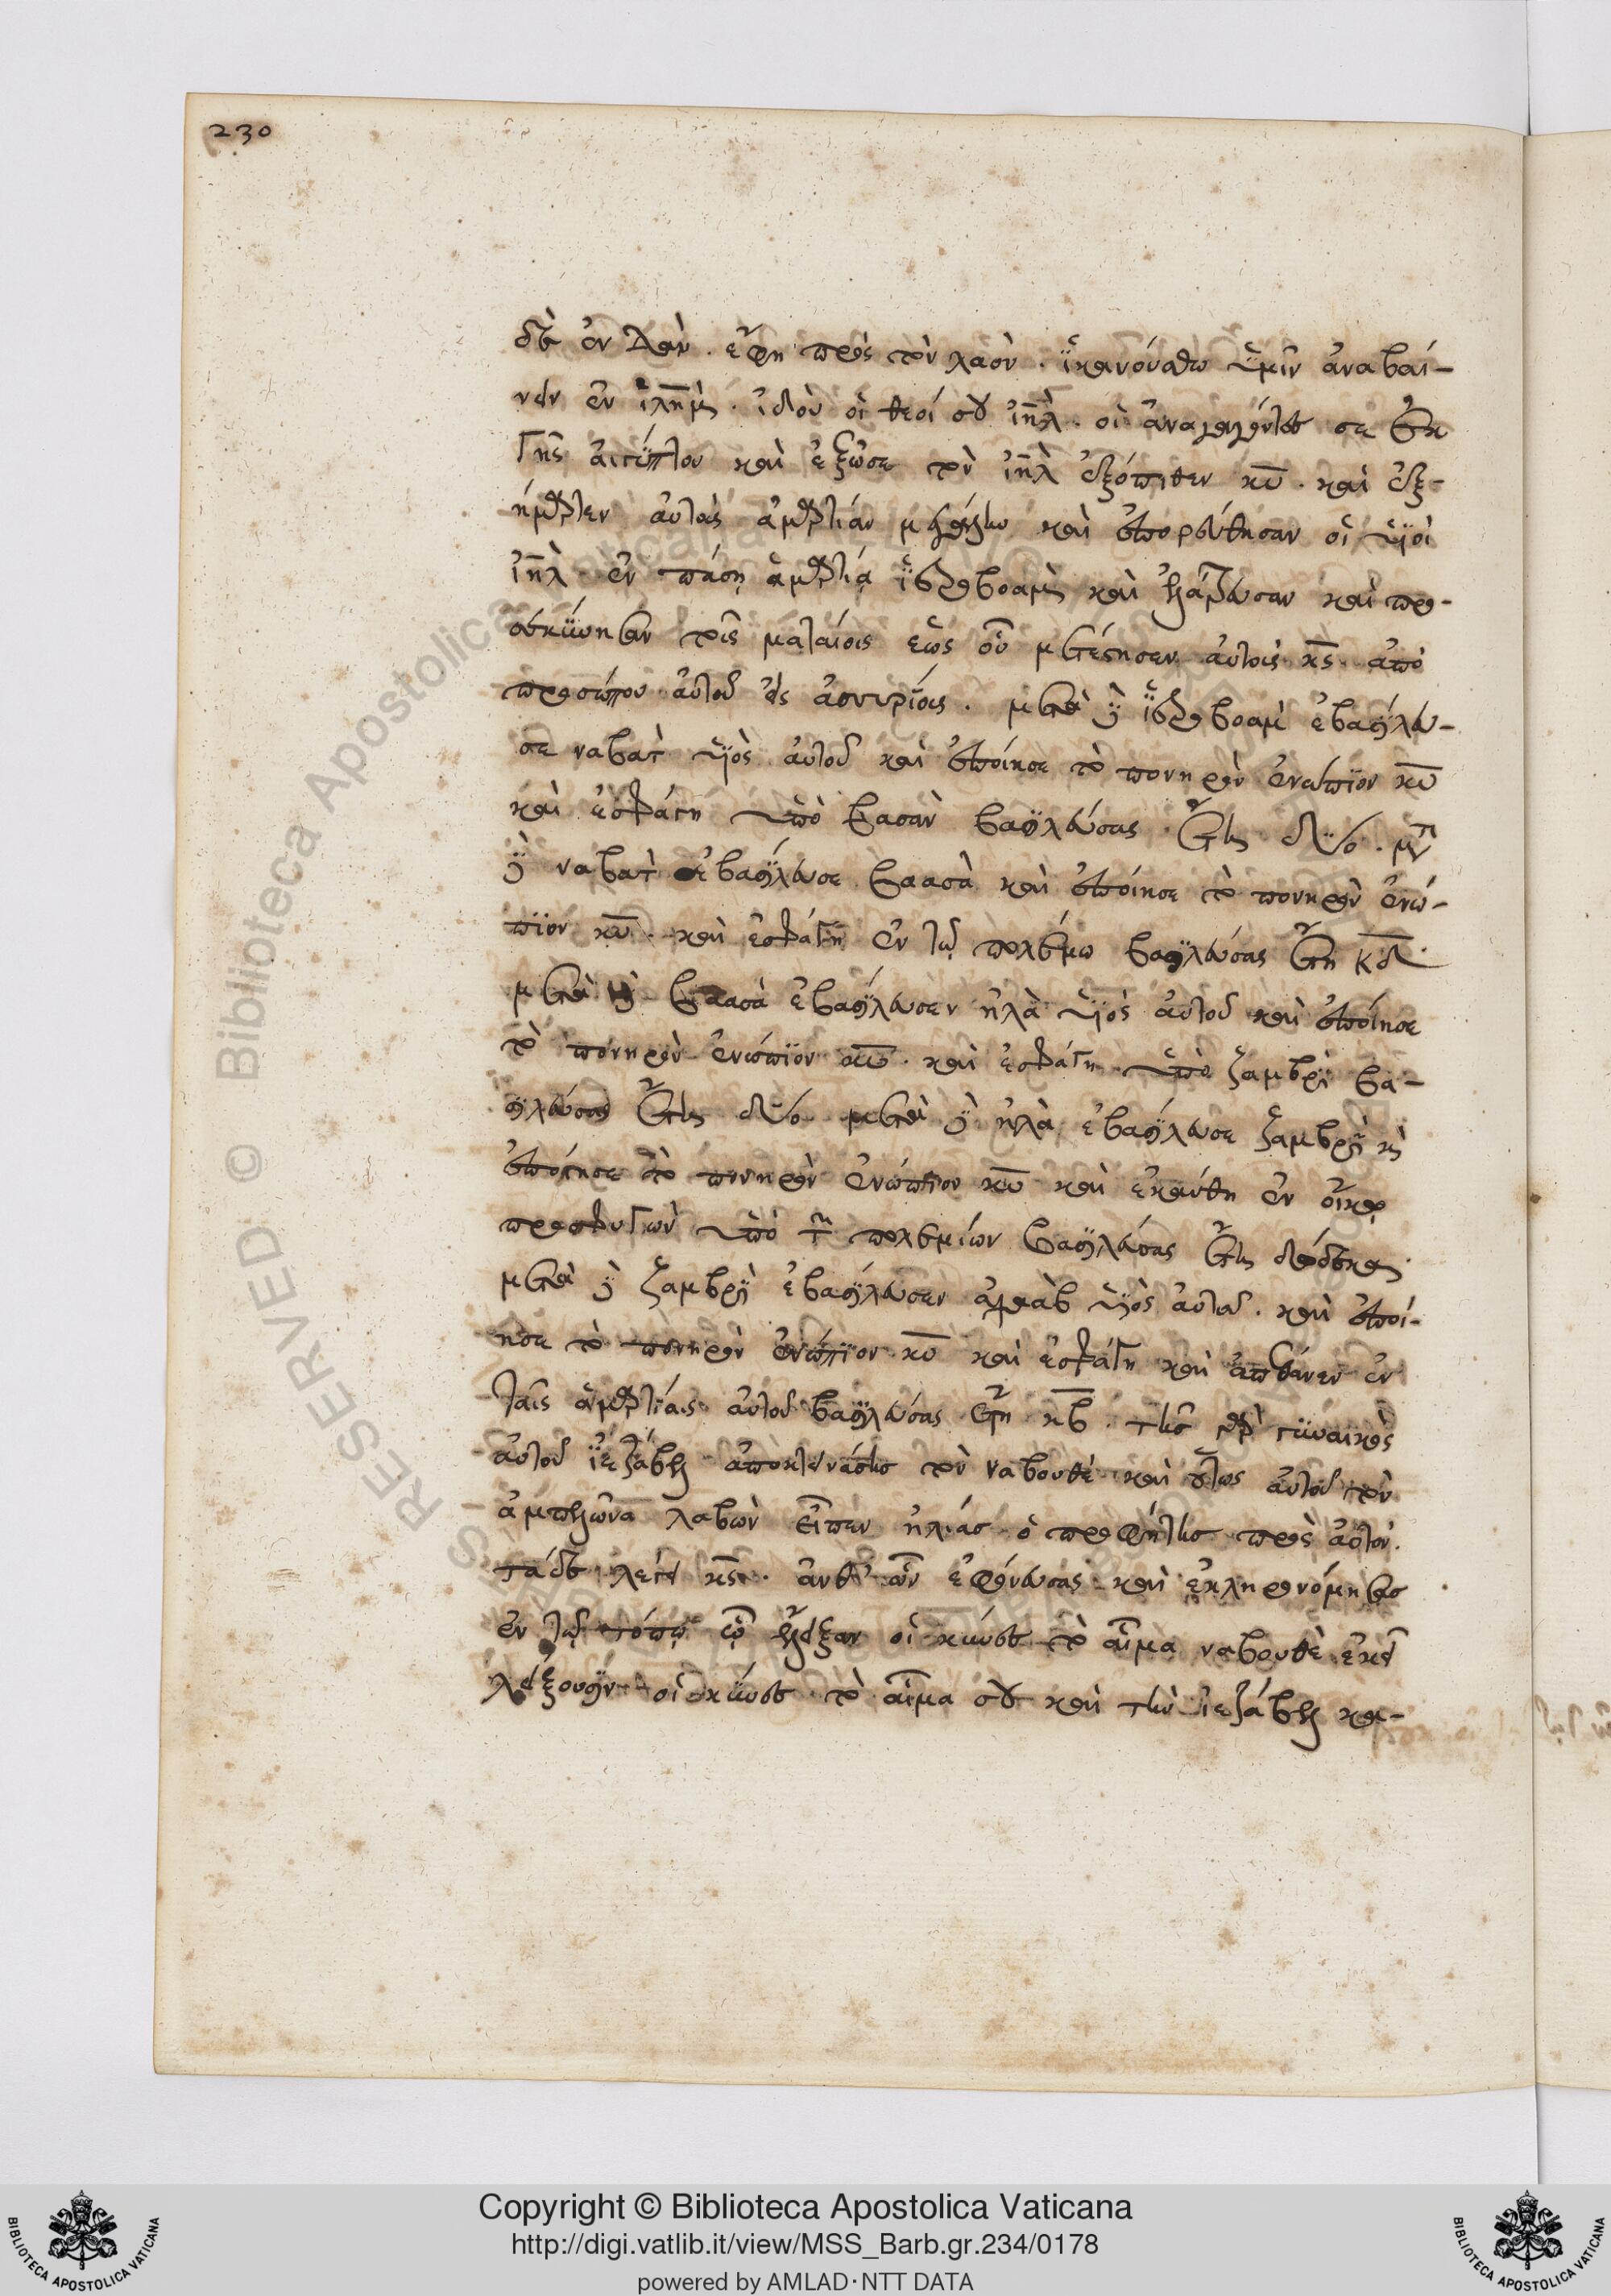 230
δὲ ἐν δὰν. ἔφη πρὸς τὸν λαὸν. ἱκανούσθω ὑμῖν ἀναβαί-
νειν ἐν ἱλημ. ἰδοὺ οἱ θεοί σου ἰηλ. οἱ ἀναγαγόντες σε ἐκ
γῆς αἰγύπτου καὶ ἐξῶσε τὸν ἰηλ ἐξόπισθεν κυ. καὶ ἐξ-
ήμαρτεν αὐτοὺς ἁμαρτίαν μεγάλην καὶ ἐπορεύθησαν οἱ υἱοὶ
ἰηλ ἐν πάσῃ ἁμαρτίᾳ ἱεροβοαμ καὶ ἐλάτρευσαν καὶ προ-
σεκύνησαν τοῖς ματαίοις ἕως οὗ μετέστησεν αὐτοὺς κς ἀπὸ
προσώπου αὐτοῦ εἰς ἀσσυρίους. μετὰ δὲ ἱεροβοαμ ἐβασίλευ-
σε ναβατ υἱὸς αὐτοῦ καὶ ἐποίησε τὸ πονηρὸν ἐνώπιον κυ
καὶ ἐσφάγη ὑπὸ βασαν βασιλεύσας ἔτη δύο. μετὰ
δὲ ναβατ ἐβασίλευσε βαασὰ καὶ ἐποίησε τὸ πονηρὸν ἐνώ-
πιον κυ. καὶ ἐσφάγη ἐν τῷ πολέμω βασιλεύσας ἔτη κδ
μετὰ δὲ βαασὰ ἐβασίλευσεν ἠλὰ υἱὸς αὐτοῦ καὶ ἐποίησε
τὸ πονηρὸν ἐνώπιον κυ. καὶ ἐσφάγη ὑπὸ ζαμβρὶ βα-
σιλεύσας ἔτη δύο μετὰ δὲ ἠλὰ ἐβασίλευσε ζαμβρὶ κὶ
ἐποίησε τὸ πονηρὸν ἐνώπιον κυ καὶ ἐκαύθη ἐν οἴκῳ
προσφυγὼν ὑπὸ τῶν πολεμίων βασιλεύσας ἔτη δώδεκα
μετὰ δὲ ζαμβρὶ ἐβασίλευσεν ἀχαὰβ υἱὸς αὐτοῦ. καὶ ἐποί-
ησε τὸ πονηρὸν ἐνώπιον κυ καὶ ἐσφάγη καὶ ἀπέθανεν ἐν
ταῖς ἁμαρτίαις αὐτοῦ βασιλεύσας ἔτη κβ. τῆς γὰρ γυναικὸς
αὐτοῦ ἰεζάβελ ἀποκτεινάσης τὸν ναβουθὲ καὶ οὕτως αὐτοῦ τὸν
ἀμπελῶνα λαβὼν εἶπεν ἠλίας ὁ προφήτης πρὸς αὐτὸν.
τάδε λέγει κς. ἀνθ' ὧν ἐφόνευσας καὶ ἐκληρονόμησας
ἐν τῷ τόπῳ ᾧ ἔλειξαν οἱ κύνες τὸ αἷμα ναβουθὲ ἐκεῖ
λείξουσιν οἱ κύνες τὸ αἷμα σου καὶ τὴν ἰεζάβελ κα-
Copyright © Biblioteca Apostolica Vaticana
http://digi.vatlib.it/view/MSS_Barb.gr.234/0178
powered by AMLAD·NTT DATA